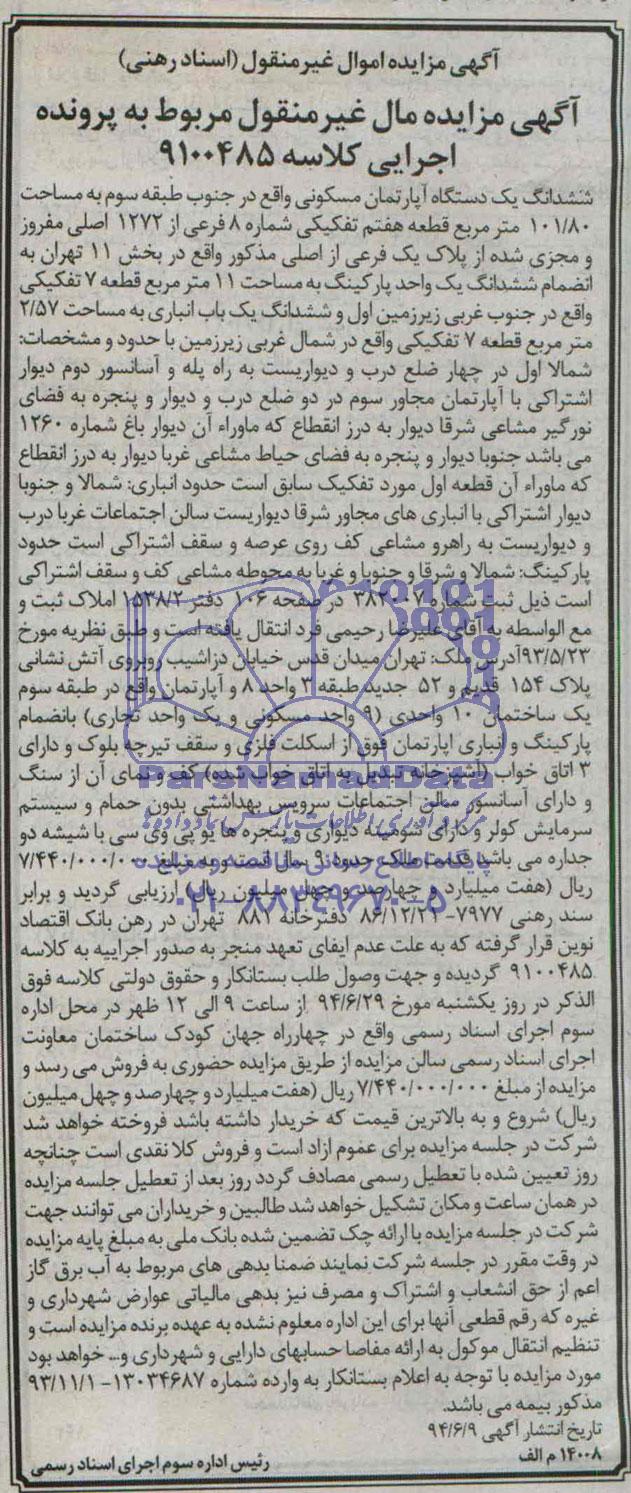 آگهی مزایده اموال غیرمنقول (اسناد رهنی)
آگهی مزایده مال غیرمنقول مربوط به پرونده
اجرایی کلاسه ۹۱۰۰۴۸۵
ششدانگ یک دستگاه آپارتمان مسکونی واقع در جنوب طبقه سوم به مساحت
۱۰۱/۸۰ متر مربع قطعه هفتم تفکیکی شماره ۸ فرعی از ۱۲۷۲ اصلی مفروز
و مجزی شده از پلاک یک فرعی از اصلی مذکور واقع در بخش ۱۱ تهران به
انضمام ششدانگ یک واحد پارکینگ به مساحت ۱۱ متر مربع قطعه ۷ تفکیکی
واقع در جنوب غربی زیرزمین اول و ششدانگ یک باب انباری به مساحت ۲/۵۷
متر مربع قطعه ۷ تفکیکی واقع در شمال غربی زیرزمین با حدود و مشخصات:
شمالا اول در چهار ضلع درب و دیواریست به راه پله و آسانسور دوم دیوار
اشتراکی با آپارتمان مجاور سوم در دو ضلع درب و دیوار و پنجره به فضای
نورگیر مشاعی شرقا دیوار به درز انقطاع که ماوراء آن دیوار باغ شماره ۱۲۶۰
می باشد جنوبا دیوار و پنجره به فضای حیاط مشاعی غربا دیوار به درز انقطاع
که ماوراء آن قطعه اول مورد تفکیک سابق است حدود انباری: شمالا و جنوبا
دیوار اشتراکی با انباری های مجاور شرقا دیواریست سالن اجتماعات غربا درب
و دیواریست به راهرو مشاعی کف روی عرصه و سقف اشتراکی است حدود
پارکینگ: شمالا و شرقا و جنوبا و غربا به محوطه مشاعی کف و سقف اشتراکی
است ذیل ثبت شماره در صفحه ۱۰۶ دفتر ۱۵۳۸/۲ املاک ثبت و
مع الواسطه به آقای علیرضا رحیمی فرد انتقال یافته است و طبق نظریه مورخ
۹۳/۵/۲۳ آدرس ملک: تهران میدان قدس خیابان دزاشیب روبروی آتش نشانی
پلاک ۱۵۴ قدیم و ۵۲ جدید طبقه ۳ واحد ۸ و آپارتمان واقع در طبقه سوم
یک ساختمان ۱۰ واحدی (۹ واحد مسکونی و یک واحد تجاری) بانضمام
پارکینگ و انباری اپارتمان فوق از اسکلت فلزی و سقف تیرچه بلوک و دارای
۳ اتاق خواب (آشپزخانه تبدیل به اتاق خواب شده) کف و نمای آن از سنگ
و دارای آسانسور سالن اجتماعات سرویس بهداشتی بدون حمام و سیستم
سرمایش کولر و دارای شومینه دیواری و پنجره ها یو پی وی سی با شیشه دو
جداره می باشد قدمت ملک حدود ۹ سال است و به مبلغ ۷/۴۴۰/۰۰۰/۰۰۰
ریال (هفت میلیارد و چهارصد و چهل میلیون ریال) ارزیابی گردید و برابر
سند رهنی ۷۹۷۷- ۸۶/۱۲/۲۱ دفترخانه ۸۸۱ تهران در رهن بانک اقتصاد
نوین قرار گرفته که به علت عدم ایفای تعهد منجر به صدور اجراییه به کلاسه
۹۱۰۰۴۸۵ گردیده و جهت وصول طلب بستانکار و حقوق دولتی کلاسه فوق
الذکر در روز یکشنبه مورخ ۹۴/۶/۲۹ از ساعت ۹ الی ۱۲ ظهر در محل اداره
سوم اجرای اسناد رسمی واقع در چهارراه جهان کودک ساختمان معاونت
اجرای اسناد رسمی سالن مزایده از طریق مزایده حضوری به فروش می رسد و
مزایده از مبلغ ۷/۴۴۰/۰۰۰/۰۰۰ ریال (هفت میلیارد و چهارصد و چهل میلیون
ریال) شروع و به بالاترین قیمت که خریدار داشته باشد فروخته خواهد شد
شرکت در جلسه مزایده برای عموم ازاد است و فروش کلا نقدی است چنانچه
روز تعیین شده با تعطیل رسمی مصادف گردد روز بعد از تعطیل جلسه مزایده
در همان ساعت و مکان تشکیل خواهد شد طالبین و خریداران می توانند جهت
شرکت در جلسه مزایده با ارائه چک تضمین شده بانک ملی به مبلغ پایه مزایده
در وقت مقرر در جلسه شرکت نمایند ضمنا بدهی های مربوط به آب برق گاز
اعم از حق انشعاب و اشتراک و مصرف نیز بدهی مالیاتی عوارض شهرداری و
غیره که رقم قطعی آنها برای این اداره معلوم نشده به عهده برنده مزایده است و
تنظیم انتقال موکول به ارائه مفاصا حسابهای دارایی و شهرداری و... خواهد بود
مورد مزایده با توجه به اعلام بستانکار به وارده شماره ۱۳۰۳۴۶۸۷- ۹۳/۱۱/۱
مذکور بیمه می باشد.
تاریخ انتشار آگهی ۹۴/۶/۹
۱۴۰۰۸ م الف
رئیس اداره سوم اجرای اسناد رسمی
ParsNamadData
۰۲۱-۸۸۳۴۹۶۷۰-۵